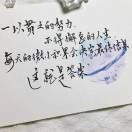 一以贯之的努力
不得懈怠的人生
每天的微小积累会决定最终结果
这就是答案